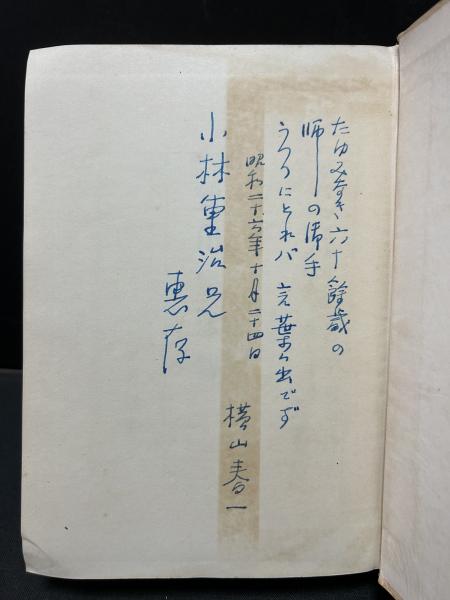 たゆみなき六十餘歳の
師の御手
うつつにとれバ 言葉も出でず
昭和二十六年十月二十四日
横山春一
小林重治兄
惠存